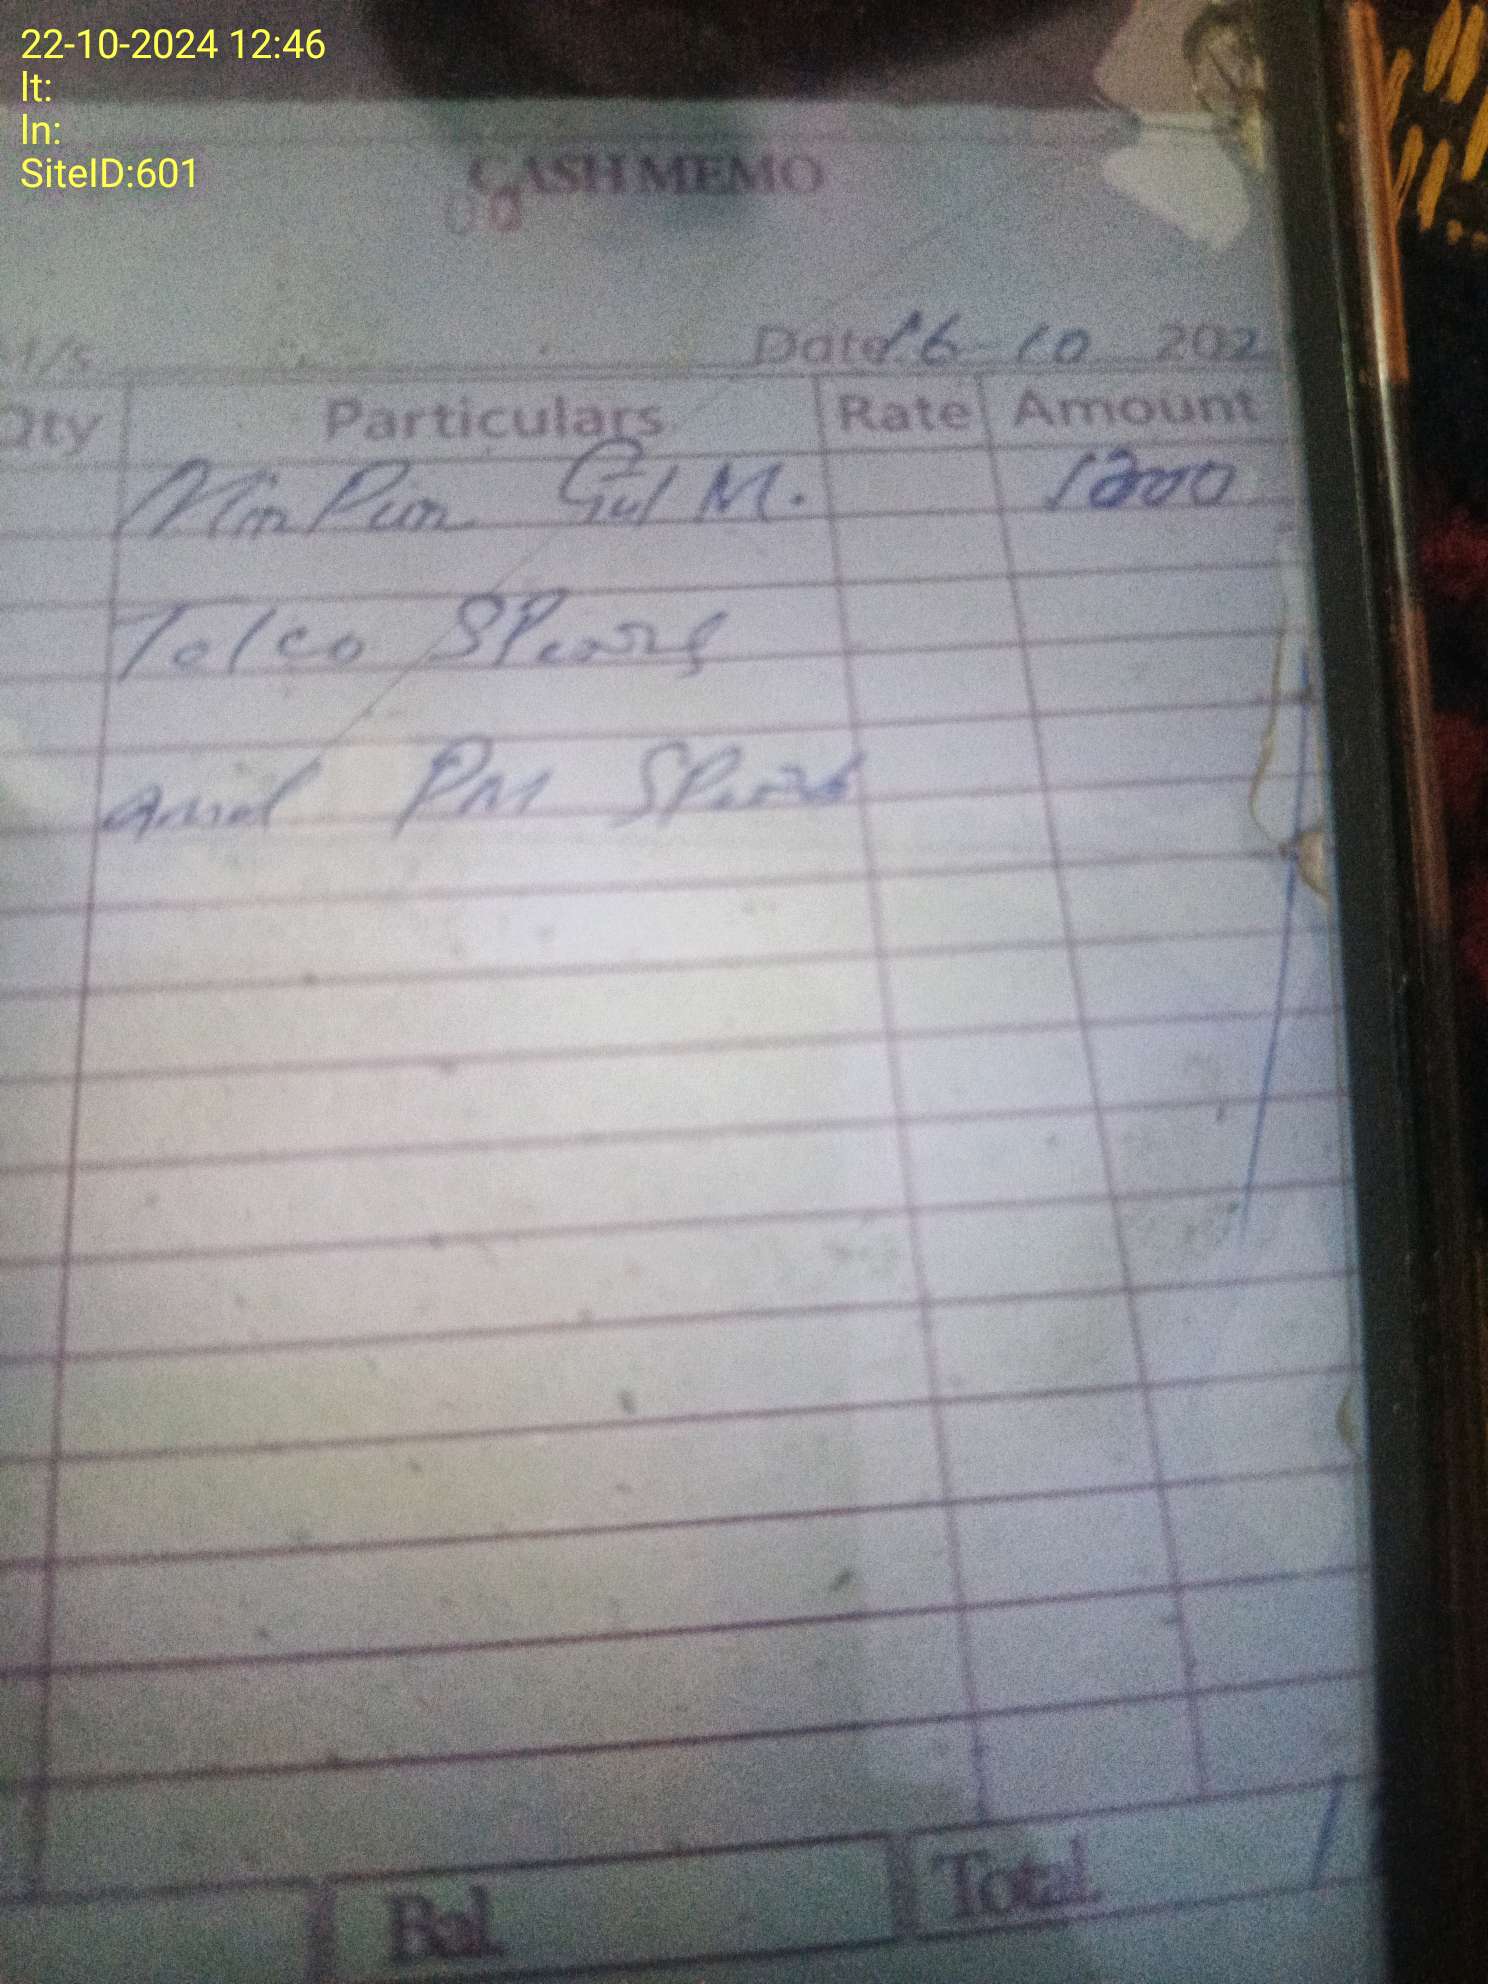 22-10-2024 12:46
lt:
ln:
SiteID:601
CASH MEMO
M/s Date 16-10 202
Qty Particulars Rate Amount
Gul M. 1200
Telco
and PM
Bal. Total